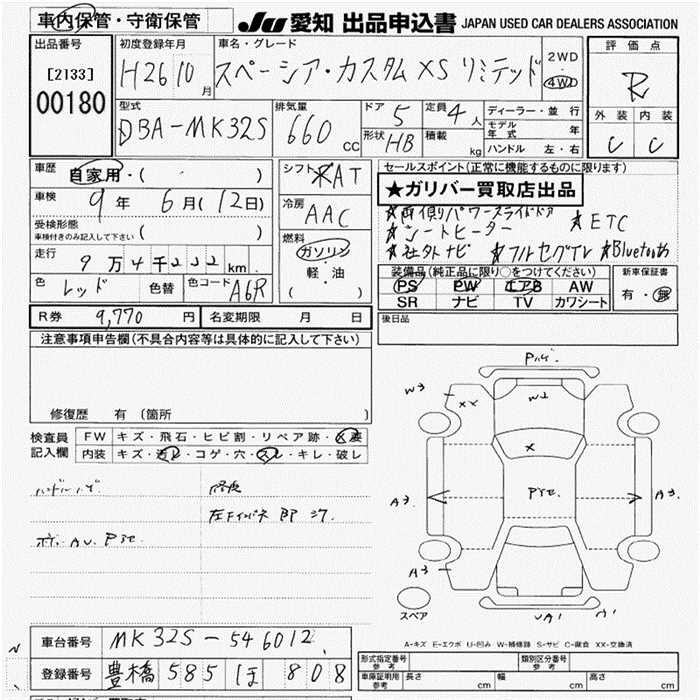 車内保管・守衛保管
JU 愛知 出品申込書 JAPAN USED CAR DEALERS ASSOCIATION
出品番号
[2133]
00180
初度登録年月
H26 10月
車名・グレード
スペーシア・カスタム XS リミテッド
2WD
4WD
評価点
R
外装 内装
C C
型式
DBA-MK32S
排気量
660 cc
ドア 5
形状 HB
定員 4 人
積載 kg
ディーラー・並行
モデル年式 年
ハンドル 左・右
車歴
自家用・( )
車検 9年 6月(12日)
受検形態
車検付きのみ記入して下さい ( )
走行 9万4千232km
色 レッド 色替 色コード A6R
シフト AT
冷房 AAC
燃料
ガソリン
軽・油
( )
セールスポイント(正常に機能するものに限ります)
★ガリバー買取店出品
★両側パワースライドドア ★ETC
★シートヒーター
★社外ナビ ★フルセグTV ★Bluetooth
装備品(純正品に限り○をつけてください)
PS PW エアB AW
SR ナビ TV カワシート
新車保証書
有・無
R券 9,770円 名変期限 月 日
後日品
注意事項申告欄(不具合内容等は具体的に記入して下さい)
修復歴 有(箇所 )
検査員記入欄
FW キズ・飛石・ヒビ割・リペア跡・X要
内装 キズ・汚れ・コゲ・穴・スレ・キレ・破レ
P
W3 XX W2
X
A3 A3
A3
スペア
UA1 A1
A-キズ E-エクボ U-凹み W-補修跡 S-サビ C-腐食 XX-交換済
車台番号 MK32S-546012
登録番号 豊橋 585 ほ 808
形式指定番号 参考
類別区分番号 参考
車庫証明 参考 長さ cm 幅 cm 高さ cm